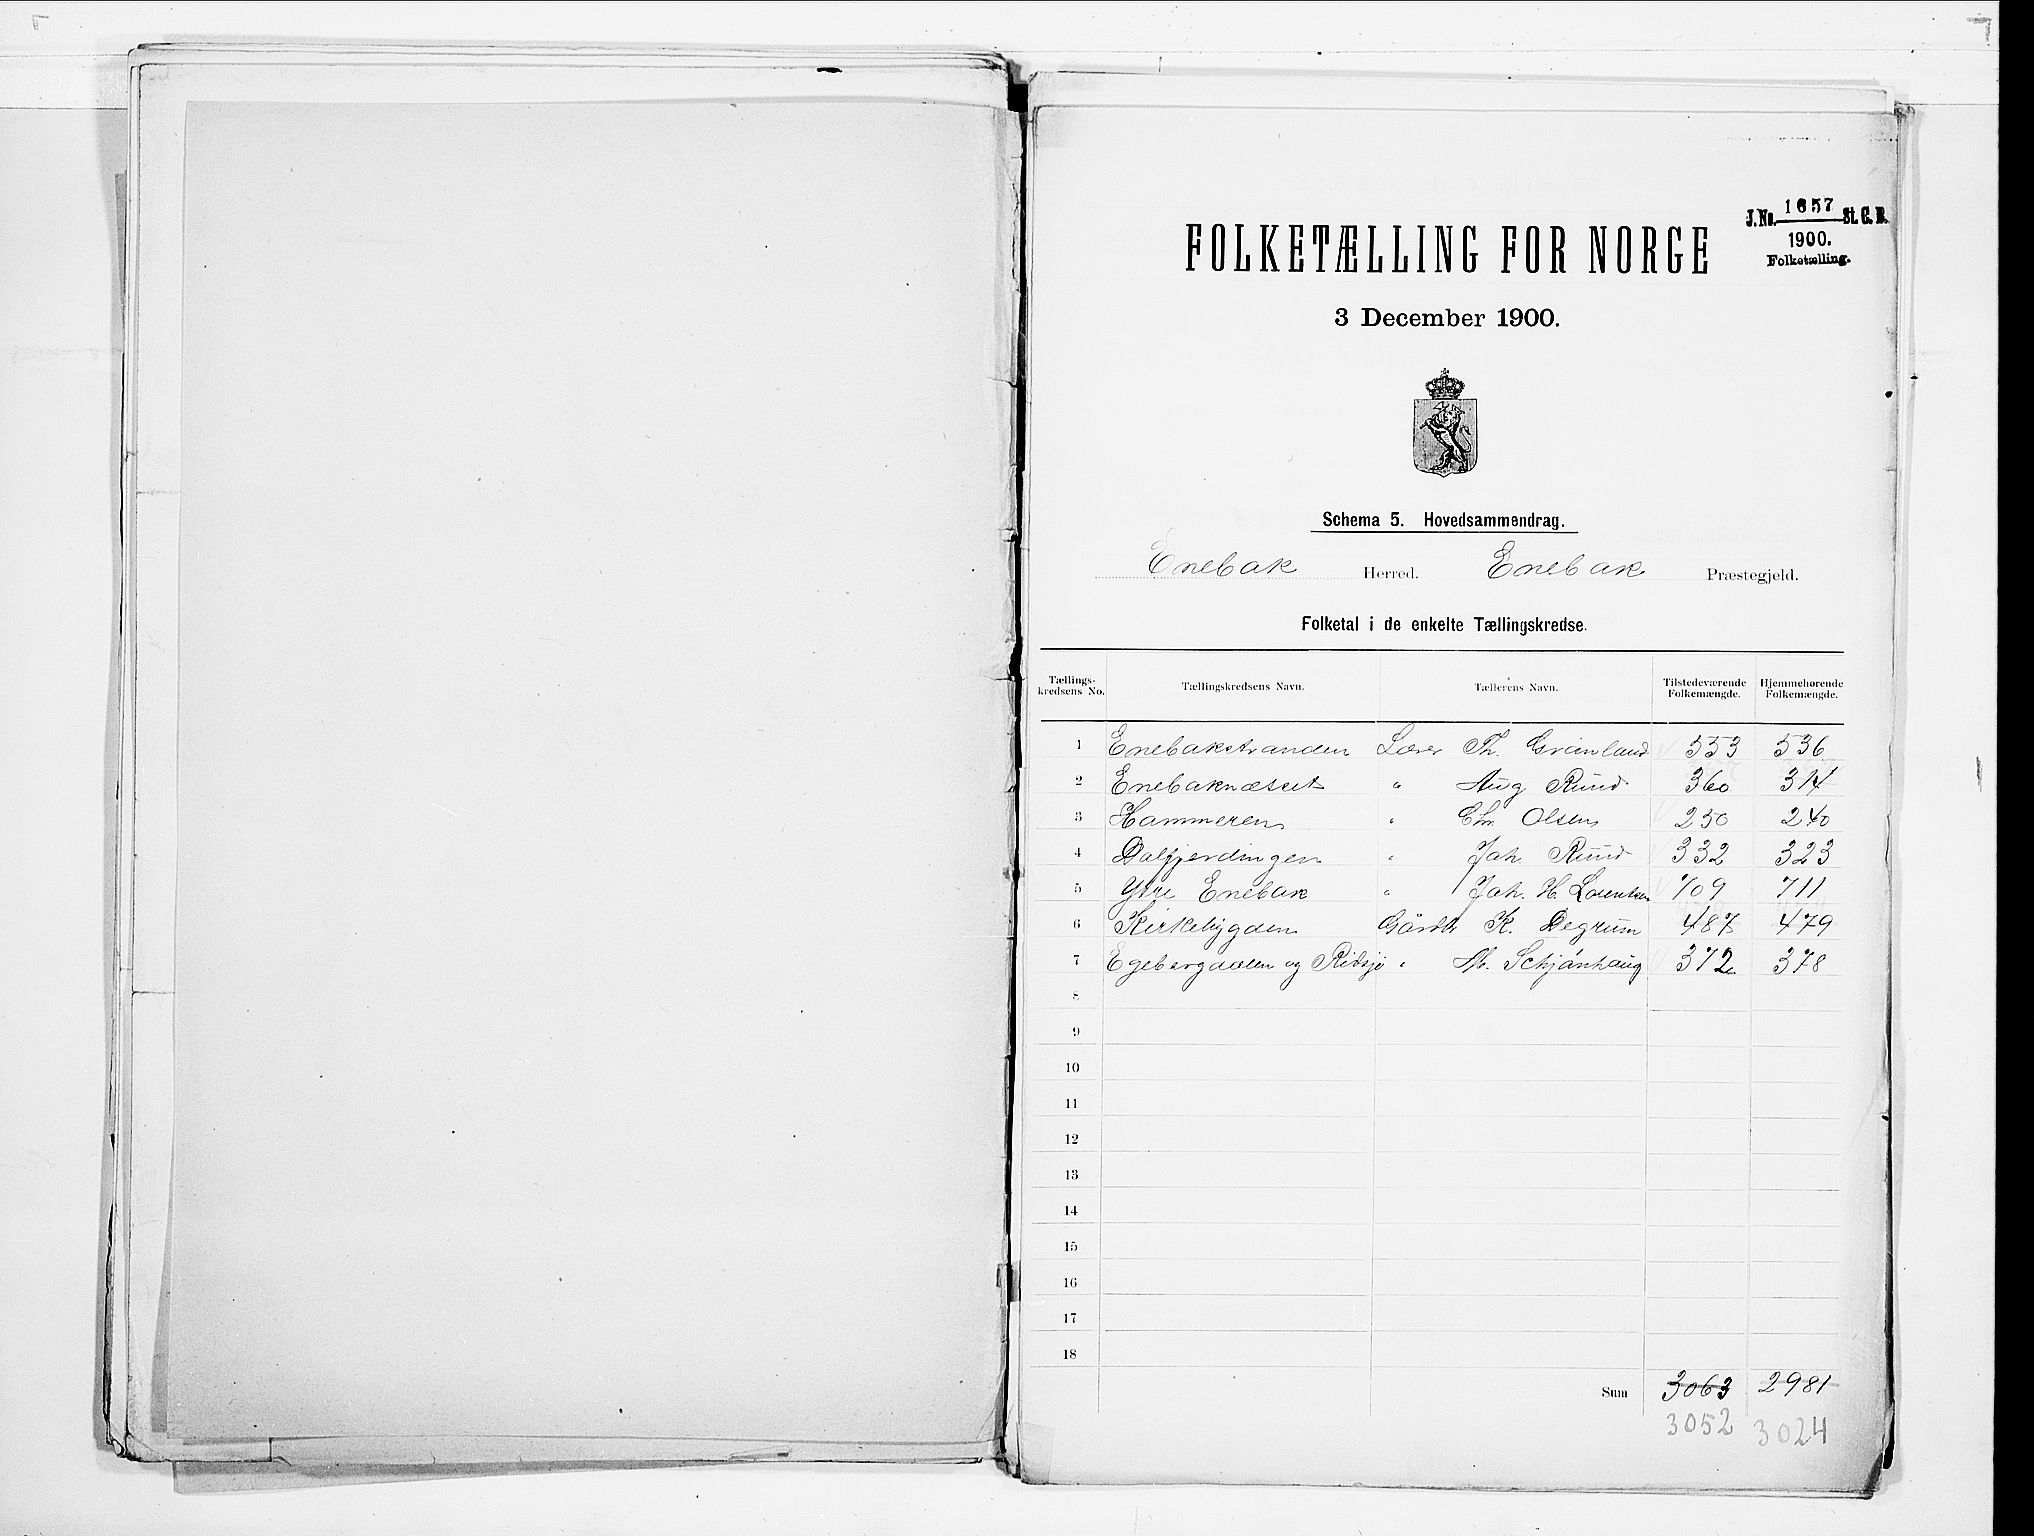 J.No. 1657 St. C. B.
1900.
Folketælling.
FOLKETÆLLING FOR NORGE
3 December 1900.
Schema 5. Hovedsammendrag.
Enebak Herred. Enebak Præstegjeld.
Folketal i de enkelte Tællingskredse.
Tællings-kredsens No. Tællingskredsens Navn. Tællerens Navn. Tilstedeværende Folkemængde. Hjemmehørende Folkemængde.
1 Enebakstranden Lærer Th. Grönland 553 536
2 Enebaknæsset " Aug Ruud 360 314
3 Hammeren " Chr. Olsen 250 240
4 Dalfjerdingen " Joh. Ruud 332 323
5 Ytre Enebak " Joh. H. Lorentsen 709 711
6 Kirkebygden Gårdbr K. Degrum 487 479
7 Egebergdalen og Ridsjø " M. Schjönhaug 372 378
8
9
10
11
12
13
14
15
16
17
18
Sum 3063 2981
3052 3024